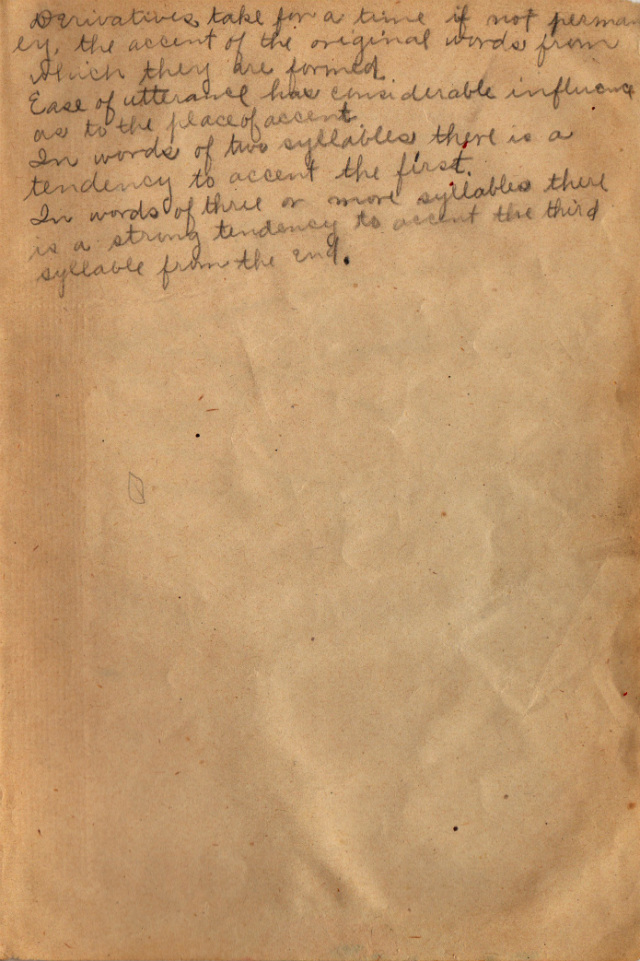 Derivatives take for a time if not perman
ey, the accent of the original words from
which they are formed.
Ease of utterance has considerable influence
as to the place of accent.
In words of two syllables there is a
tendency to accent the first.
In words of three or more syllables there
is a strong tendency to accent the third
syllable from the end.